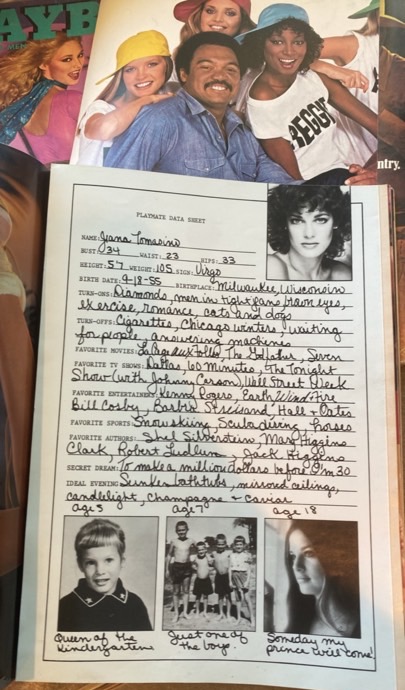 AYB
MEN
REGGI
ntry.
PLAYMATE DATA SHEET
NAME: Jeana Tomasino
BUST: 34 WAIST: 23 HIPS: 33
HEIGHT: 5'7 WEIGHT: 105 SIGN: Virgo
BIRTH DATE: 9-18-55 BIRTHPLACE: Milwaukee, Wisconsin
TURN-ONS: Diamonds, men in tight jeans, brown eyes,
exercise, romance, cats and dogs
TURN-OFFS: Cigarettes, Chicago winters, waiting
for people, answering machines
FAVORITE MOVIES: La Cage aux Folles, The Godfather, Seven
FAVORITE TV SHOWS: Dallas, 60 Minutes, The Tonight
Show (with Johnny Carson), Wall Street Week
FAVORITE ENTERTAINERS: Kenny Rogers, Earth Wind + Fire
Bill Cosby, Barbra Streisand, Hall + Oates
FAVORITE SPORTS: Snow skiing, Scuba diving, horses
FAVORITE AUTHORS: Shel Silverstein, Mary Higgins
Clark, Robert Ludlum, Jack Higgins
SECRET DREAM: To make a million dollars before I'm 30
IDEAL EVENING: Sunken bathtubs, mirrored ceilings,
candlelight, Champagne + Caviar
age 5 age 7 age 18
Queen of the Kindergarten
Just one of the boys.
Someday my prince will come!